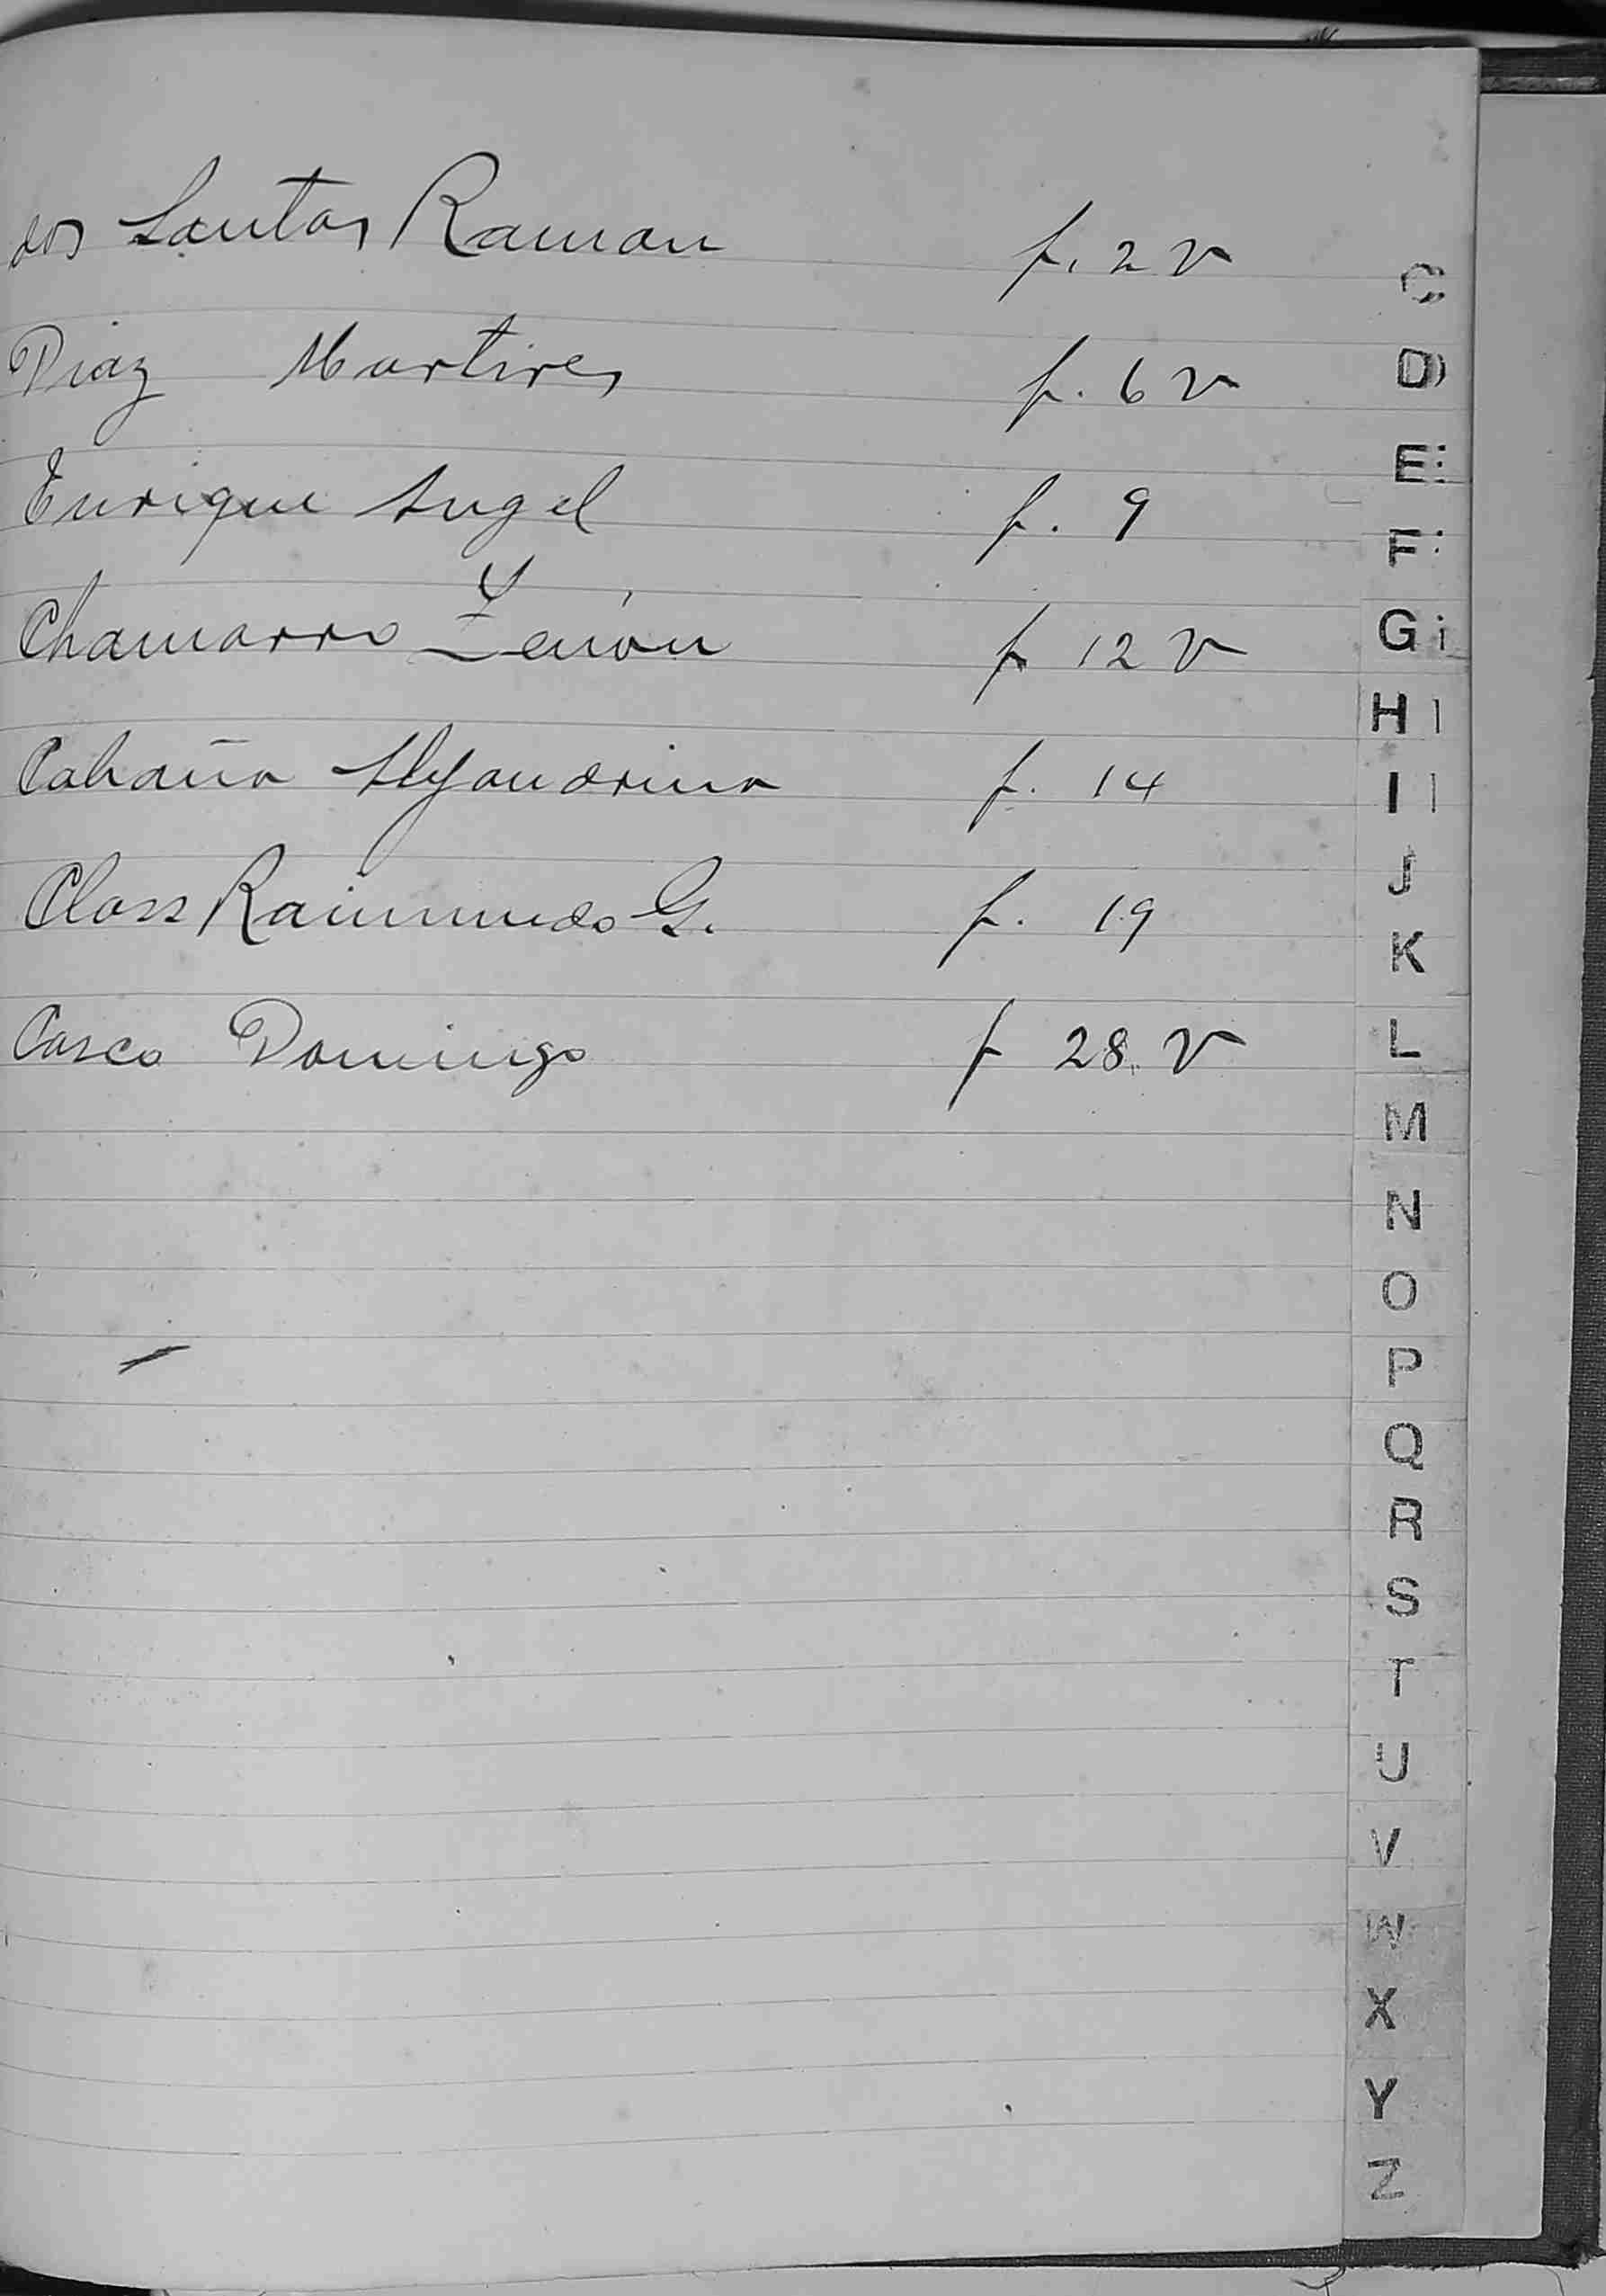 dos Santos Ramon f. 2 v
Diaz Martires f. 6 v
Enrique Angel f. 9
Chamorro Zenón f 12 v
Cabaña Alejandrina f. 14
Class Raimundo G. f. 19
Casco Domingo f 28 v
C
D
E
F
G
H
I
J
K
L
M
N
O
P
Q
R
S
T
U
V
W
X
Y
Z